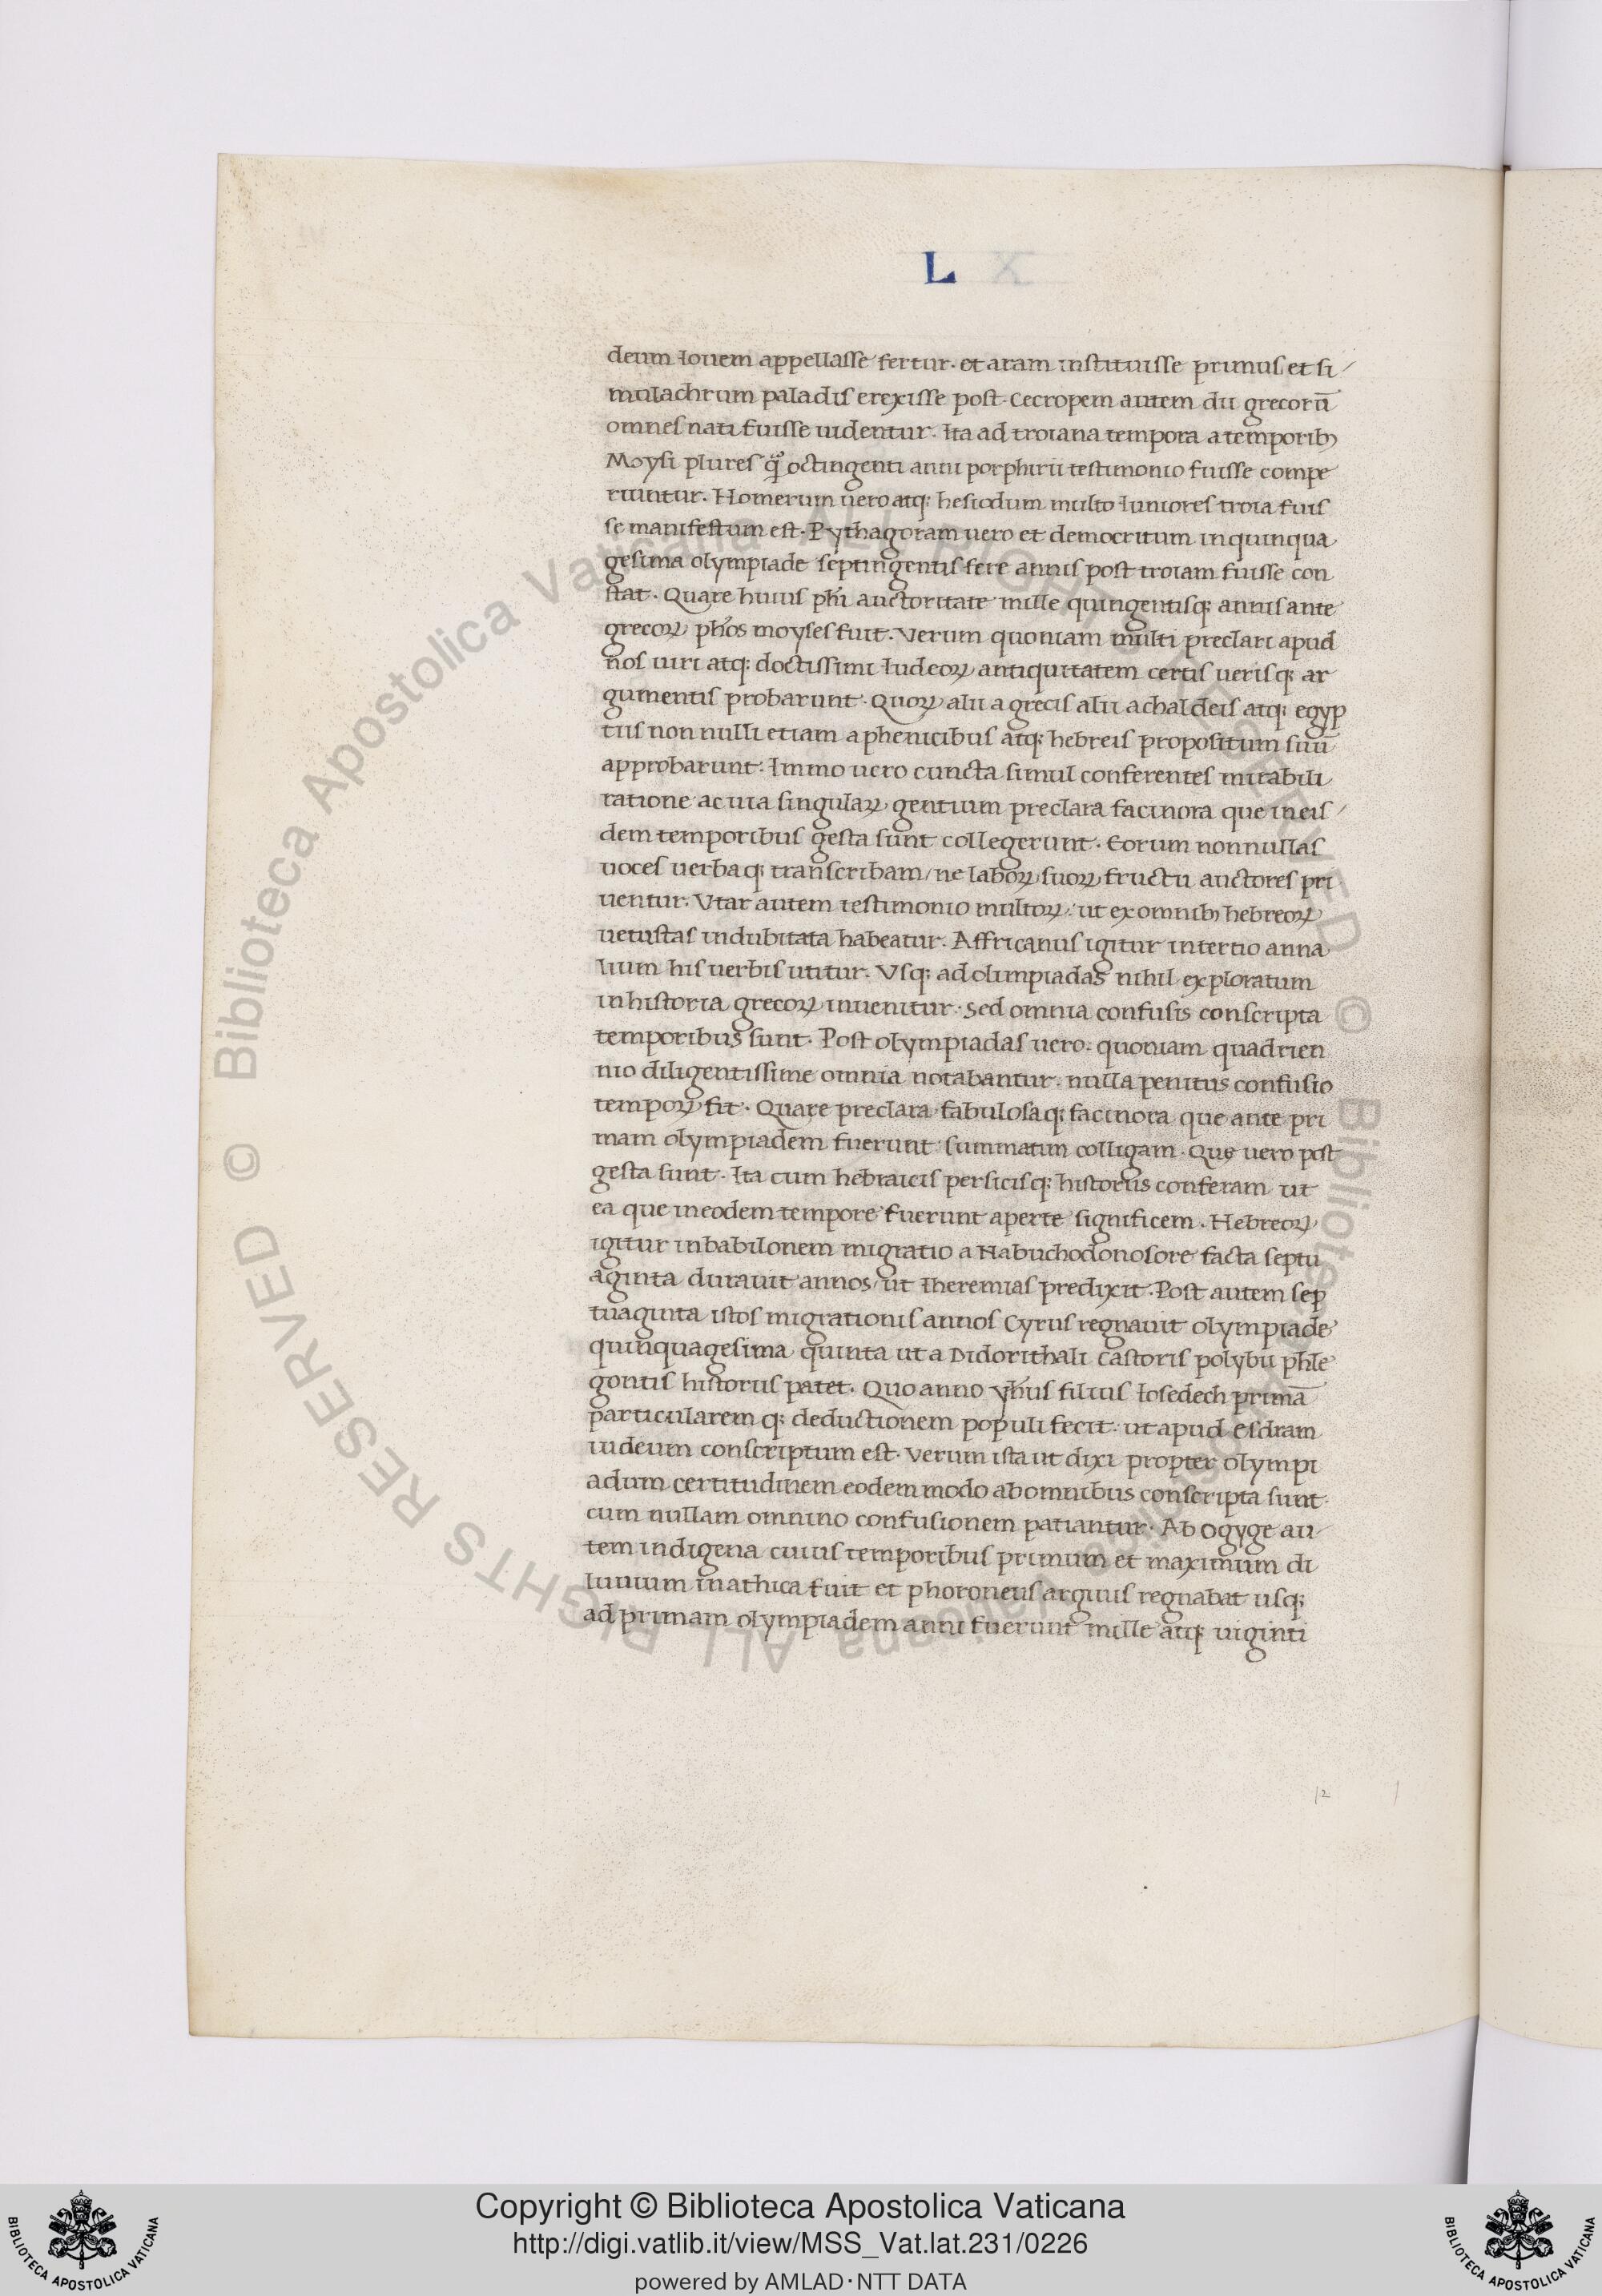 L X
deum Iouem appellasse fertur. et aram instituisse primus, et si/
mulachrum paladis erexisse post. Cecropem autem dii grecorū
omnes nati fuisse uidentur. Ita ad troiana tempora a temporibꝫ
Moysi plures qͫ octingenti anni porphirii testimonio fuisse compe
riuntur. Homerum uero atqꝫ hesiodum multo Iuniores troia fuis
se manifestum est. Pythagoram uero et democritum in quinqua
gesima olympiade septingentis fere annis post troiam fuisse con
stat. Quare huius phi auctoritate mille quingentisqꝫ annis ante
grecoꝝ phos moyses fuit. Verum quoniam multi preclari apud
nos uiri atqꝫ doctissimi Iudeoꝝ antiquitatem certis uerisqꝫ ar
gumentis probarunt. Quoꝝ alii a grecis alii a chaldeis atqꝫ egyp
tiis non nulli etiam a phenicibus atqꝫ hebreis propositum suū
approbarunt. Immo uero cuncta simul conferentes mirabili
ratione ac uia singulaꝝ gentium preclara facinora que in eis/
dem temporibus gesta sunt collegerunt. Eorum nonnullas
uoces uerbaqꝫ transcribam/ ne laboꝝ suoꝝ fructu auctores pri
uentur. Vtar autem testimonio multoꝝ: ut ex omnibꝫ hebreoꝝ
uetustas indubitata habeatur. Affricanus igitur in tertio anna
lium his uerbis utitur. Vsqꝫ ad olimpiadas nihil exploratum
in historia grecoꝝ inuenitur. Sed omnia confusis conscripta
temporibus sunt. Post olympiadas uero: quoniam quadrien
nio diligentissime omnia notabantur. nulla penitus confusio
tempoꝝ fit. Quare preclara fabulosaqꝫ facinora que ante pri
mam olympiadem fuerunt summatim colligam. Quę uero post
gesta sunt. Ita cum hebraicis persicisqꝫ historiis conferam ut
ea que in eodem tempore fuerunt aperte significem. Hebreoꝝ
igitur in babilonem migratio a Nabuchodonosore facta septu
aginta durauit annos/ ut Iheremias predixit. Post autem sep
tuaginta istos migrationis annos Cyrus regnauit olympiade
quinquagesima quinta ut a Didorithali Castoris polybii phle
gontis historiis patet. Quo anno yhus filius Iosedech primā
particularem qꝫ deductionem populi fecit: ut apud Esdram
iudeum conscriptum est. Verum ista ut dixi propter olympi
adum certitudinem eodem modo ab omnibus conscripta sunt.
cum nullam omnino confusionem patiantur. Ab Ogyge au/
tem indigena cuius temporibus primum et maximum di
luuium in athica fuit et phoroneus arguis regnabat usqꝫ
ad primam olympiadem anni fuerunt mille atqꝫ uiginti
12
© Biblioteca Apostolica Vaticana ALL RIGHTS RESERVED © Biblioteca Apostolica Vaticana ALL RIGHTS RESERVED
BIBLIOTECA APOSTOLICA VATICANA
Copyright © Biblioteca Apostolica Vaticana
http://digi.vatlib.it/view/MSS_Vat.lat.231/0226
powered by AMLAD·NTT DATA
BIBLIOTECA APOSTOLICA VATICANA